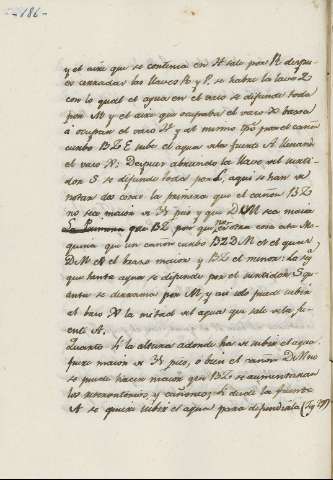 -186-
y el aire que se contenia en H sale por R despu
es cerradas las llaves R y P. se habre la lave Z
con lo qual el agua en el vaso se difunde toda
por M y el aire que ocupaba el vaso X baxa
á ocupar el vaso H y al mismo tpo. por el cañon
curbo BZE sube el agua de la fuente A llenará
el vaso X: Despues abriendo la llave del surti-
dor S se difunde toda por L, aqui se han de
notar dos cosas la primera que el cañon BZ
no sea maior de 31 pies y que DM sea maior
La Primera que BZ, por que no es otra cosa esta Ma-
quina que un cañon curbo BZDM en el qual
DM es el brazo maior y BZ el menor. La seg.
que tanta agua se difunde por el surtidor S qua
nta se derrama por M, y asi solo puede subir
al vaso X la mitad del agua que sale de la fu-
ente A.
Quarto Si la altura adonde ha de subir el agua
fuere maior de 31 pies, o bien el cañon DM no
se puede hacer maior que BZ se aumentaran
los receptorios y cañones; Si desde la fuente
A se quiere subir el agua para difundirla (Fig.